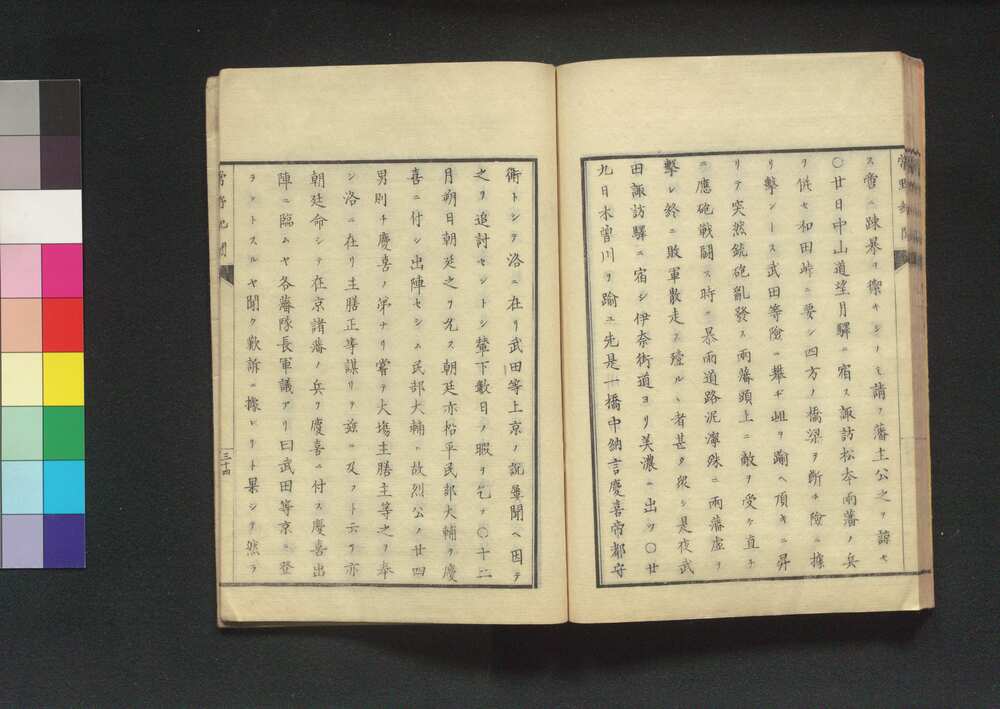 ス啻ニ疎暴ヲ禦キシノミ請フ藩主公之ヲ諒セ
〇廿日中山道望月驛ニ宿ス諏訪松本兩藩ノ兵
ヲ併セ和田峠ニ要シ四方ノ橋梁ヲ斷チ險ニ據
リ撃シース武田等險ニ攀ヂ岨ヲ踰ヘ頂キニ昇
リテ突然銃砲亂發ス兩藩頭上ニ敵ヲ受ケ直チ
ニ應砲戦闘ス時ニ暴雨道路泥濘殊ニ兩藩虚ヲ
撃レ終ニ敗軍散走ス殪ルヽ者甚タ衆シ是夜武
田諏訪驛ニ宿シ伊奈街道ヨリ美濃ニ出ツ〇廿
九日木曽川ヲ踰ユ先是一橋中納言慶喜帝都守
衛トシテ洛ニ在リ武田等上京ノ説彙聞ヘ因テ
之ヲ追討セントシ輦下數日ノ暇ヲ乞フ〇十二
月朔日朝廷之ヲ允ス朝廷亦松平民部大輔ヲ慶
喜ニ付シ出陣セシム民部大輔ハ故烈公ノ廿四
男則チ慶喜ノ弟ナリ嘗テ大塲主膳主等之ヲ奉
シ洛ニ在リ主膳正等謀リテ茲ニ及フト云フ亦
朝廷命シテ在京諸藩ノ兵ヲ慶喜ニ付ス慶喜出
陣ニ臨ムヤ各藩隊長軍議アリ曰武田等京ニ登
ラントスルヤ聞ク歎訴ニ據レリト果シテ然ラ
三十四